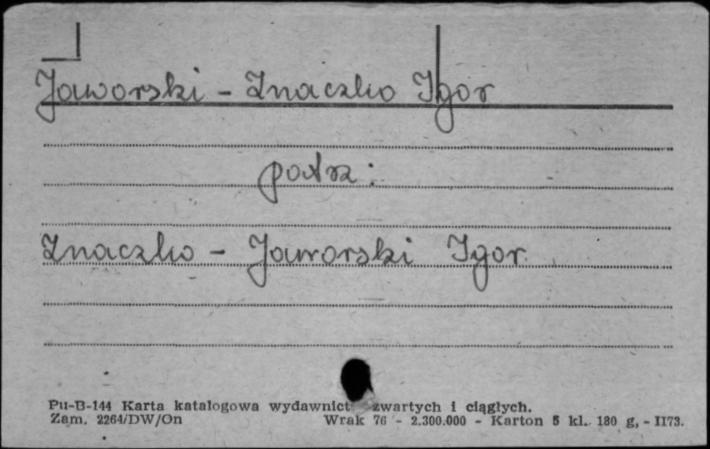 Jaworski - Znaczko Igor
patrz:
Znaczko - Jaworski Igor
Pu-B-144 Karta katalogowa wydawnict zwartych i ciągłych.
Zam. 2264/DW/On Wrak 76 - 2.300.000 - Karton 5 kl. 180 g, - II73.